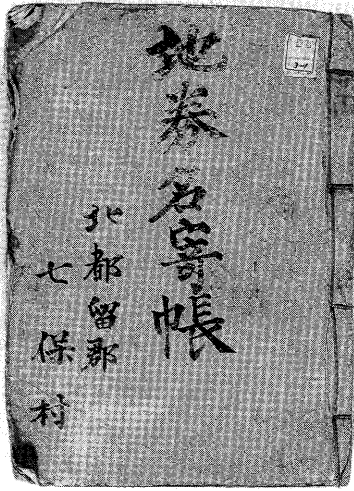 地券名寄帳
北都留郡
七保村